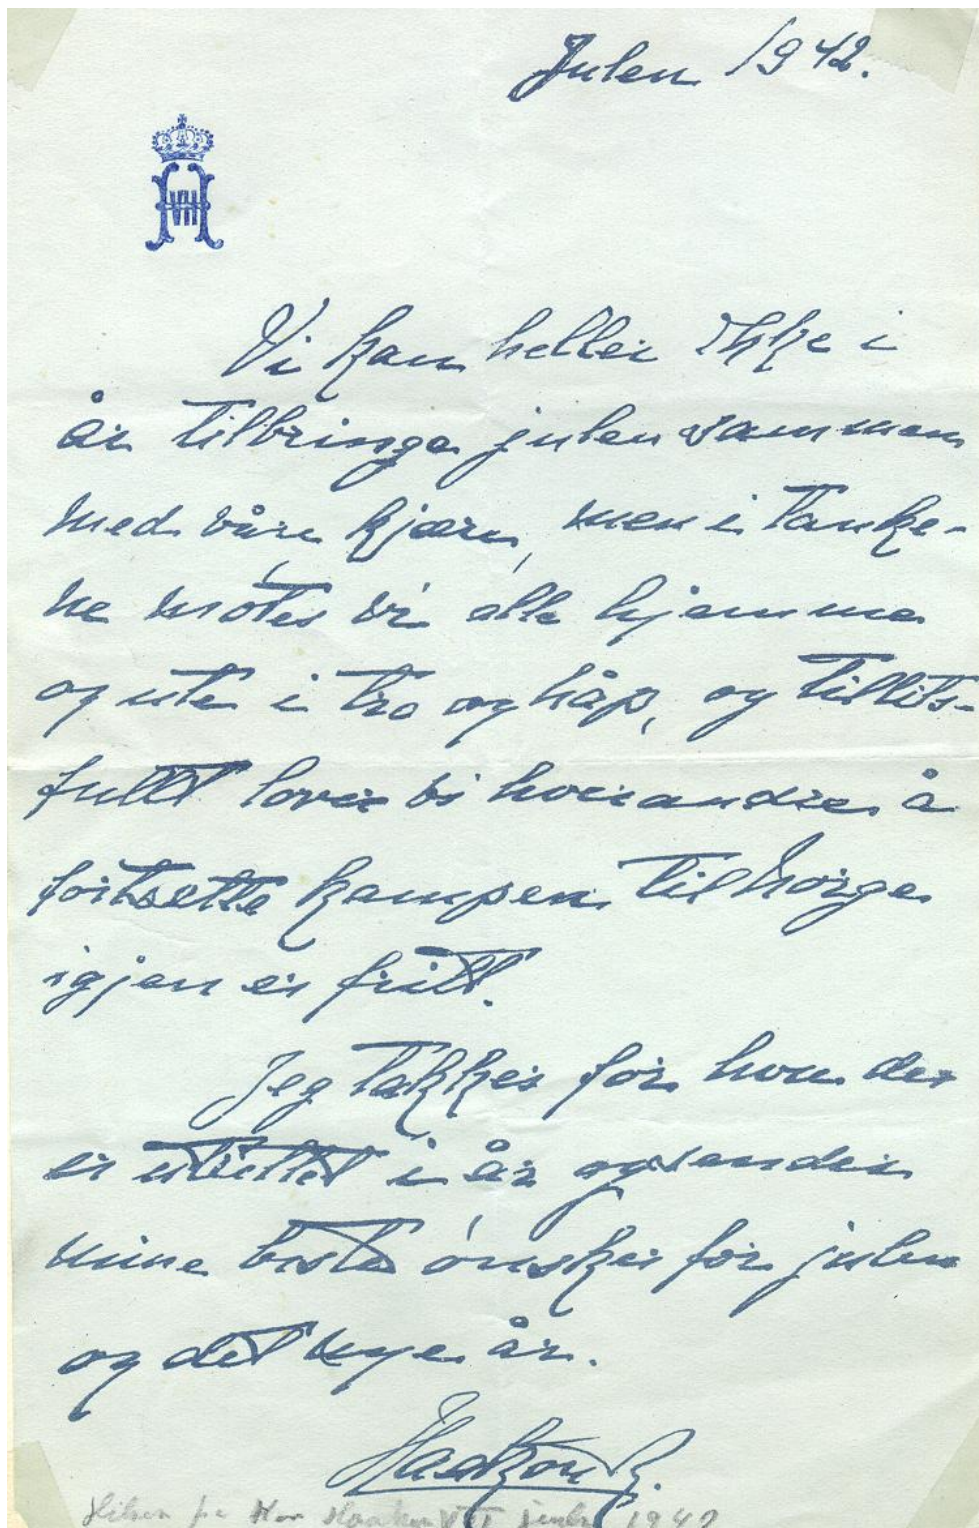 Julen 1942.
H VII
Vi kan heller ikke i
år tilbringe julen sammen
med våre kjære, men i tanke-
ne møtes vi alle hjemme
og ute i tro og håp, og tillits-
fullt lover vi hverandre å
fortsette kampen til Norge
igjen er fritt.
Jeg takker for hva der
er utrettet i år og sender
mine beste ønsker for julen
og det nye år.
Haakon R.
Hilsen fra Kon Haakon VII julen 1942